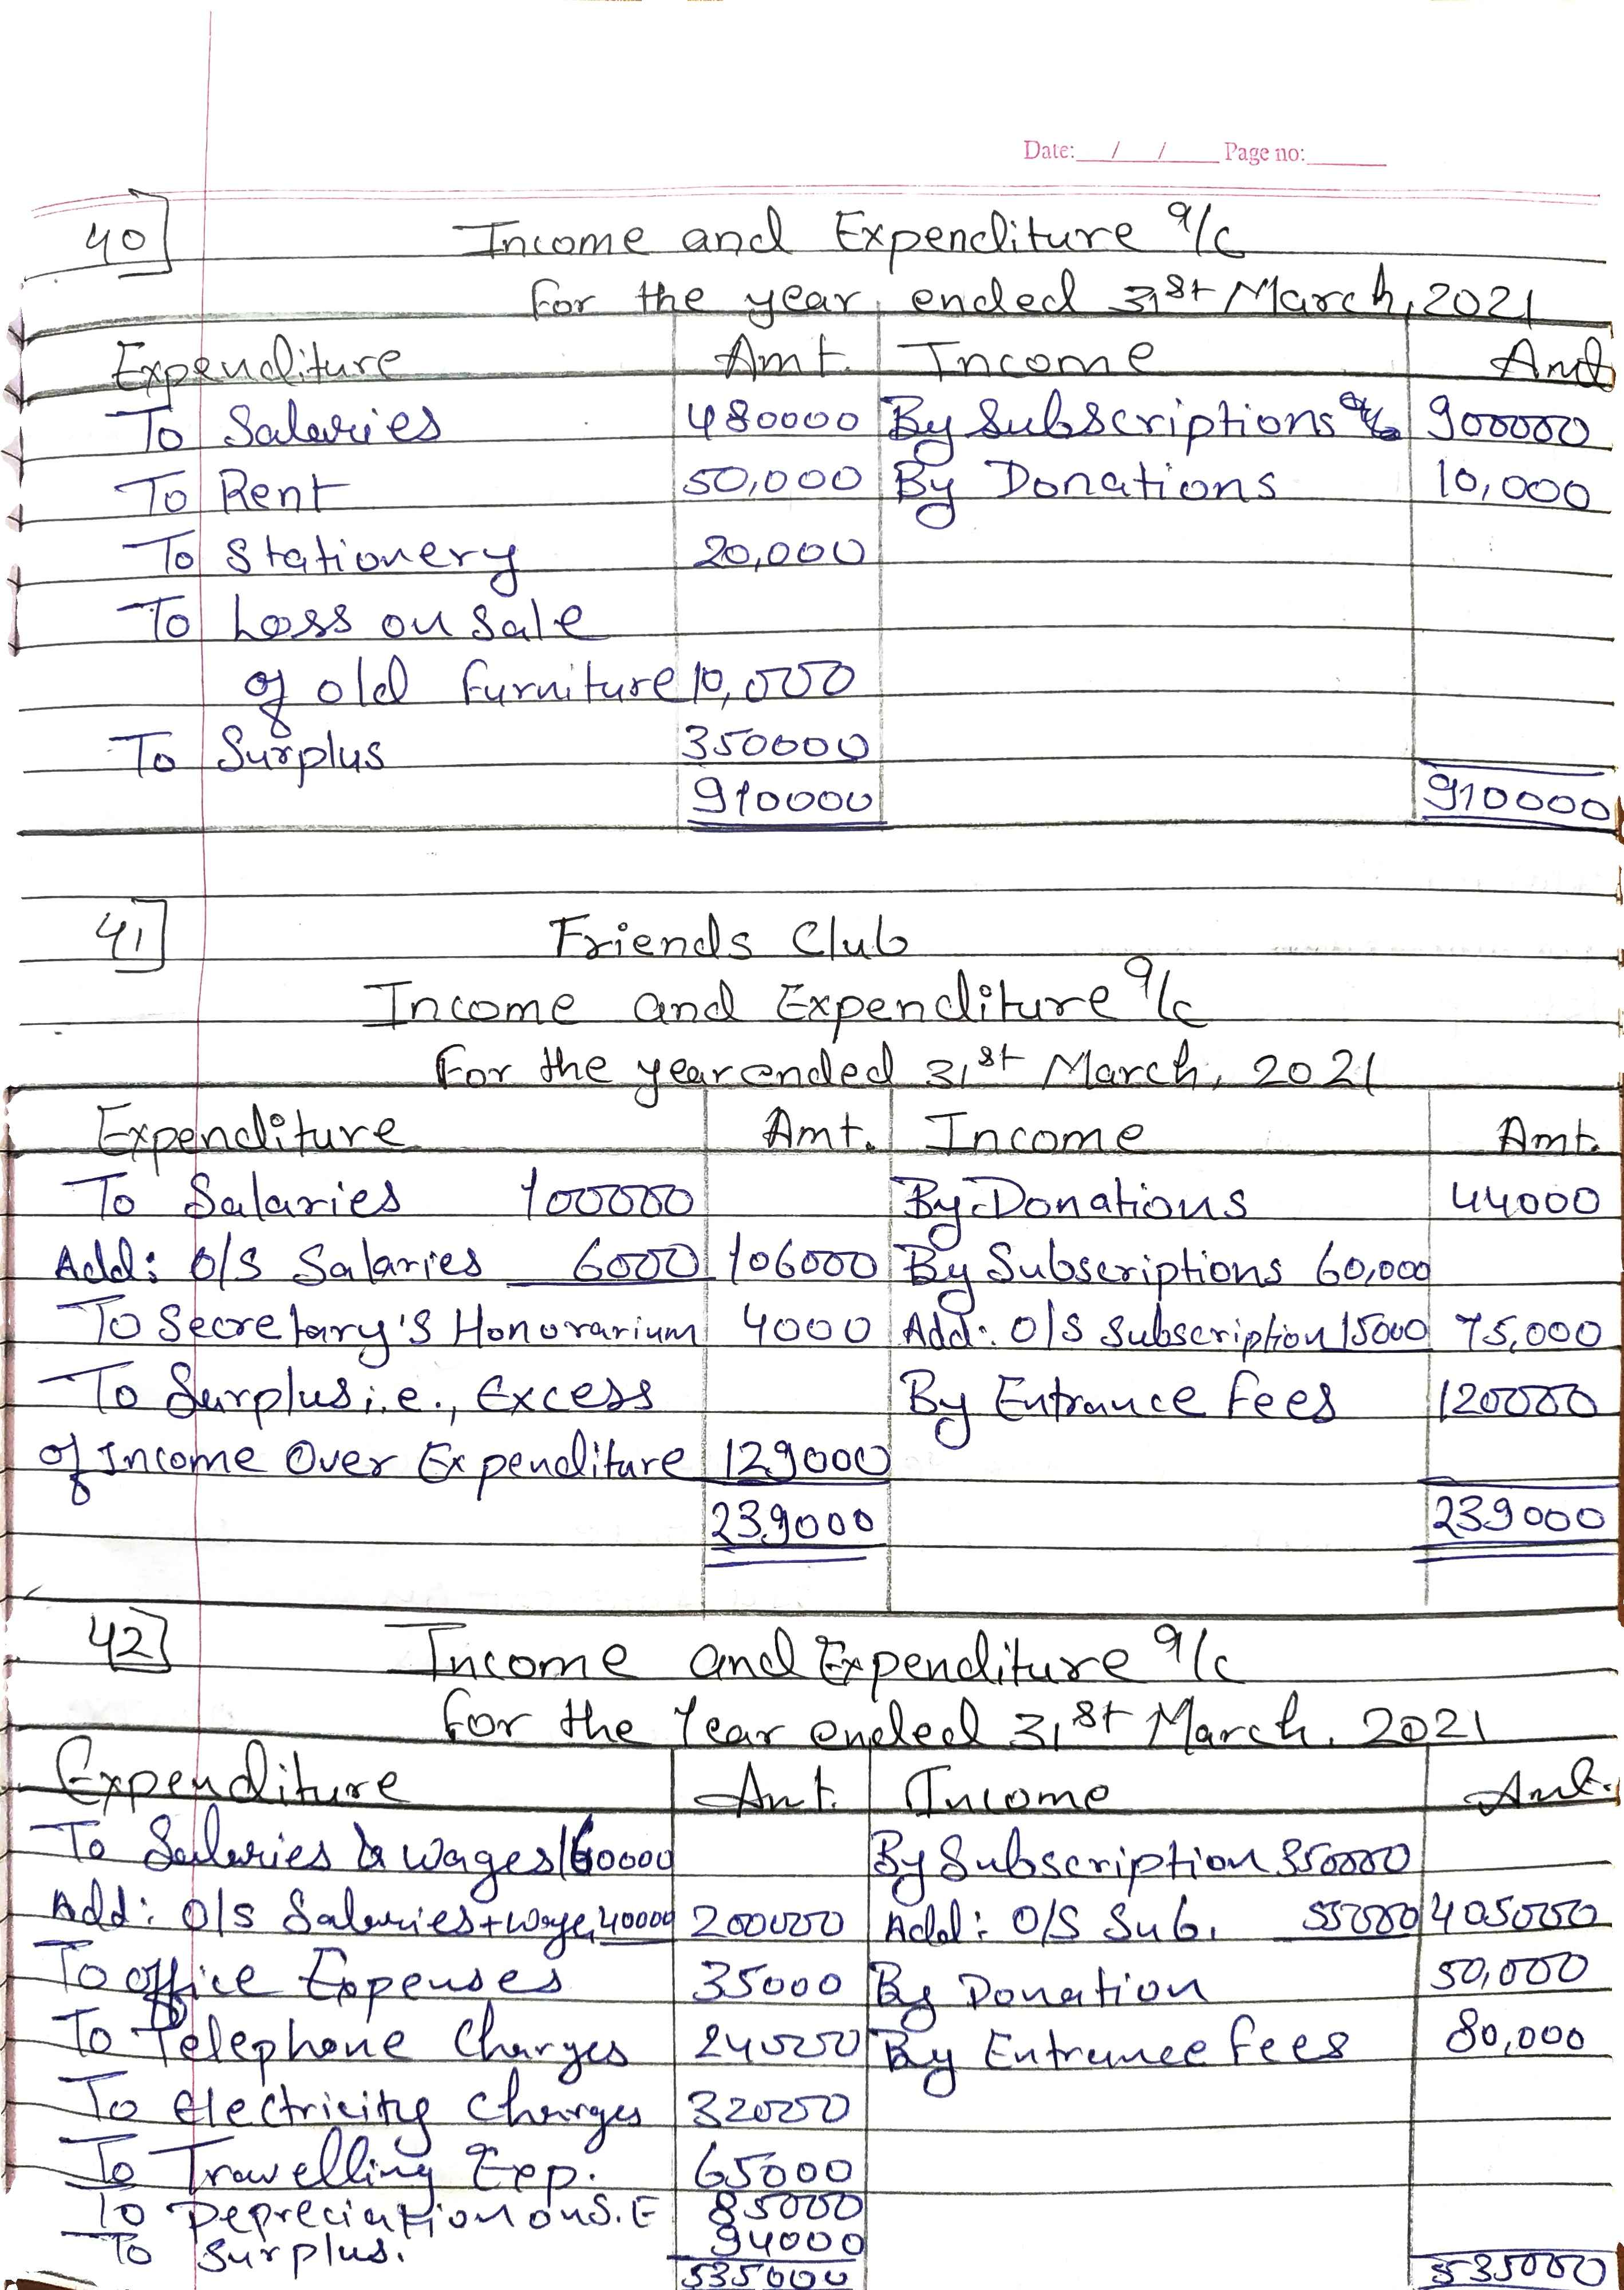 Date: / / Page no:
40] Income and Expenditure a/c
For the year ended 31st March, 2021
Expenditure Amt. Income Amt
To Salaries 480000 By Subscriptions 900000
To Rent 50,000 By Donations 10,000
To Stationery 20,000
To Loss on Sale
of old furniture 10,000
To Surplus 350000
910000 910000
41] Friends Club
Income and Expenditure a/c
For the year ended 31st March, 2021
Expenditure Amt. Income Amt.
To Salaries 100000 By Donations 44000
Add: O/S Salaries 6000 106000 By Subscriptions 60,000
To Secretary's Honorarium 4000 Add: O/S Subscription 15000 75,000
To Surplus i.e., Excess By Entrance Fees 120000
of Income Over Expenditure 129000
239000 239000
42] Income and Expenditure a/c
For the Year ended 31st March, 2021
Expenditure Amt. Income Amt.
To Salaries & Wages 160000 By Subscription 350000
Add: O/S Salaries + wage 40000 200000 Add: O/S Sub. 55000 405000
To office Expenses 35000 By Donation 50,000
To Telephone Charges 24000 By Entrance Fees 80,000
To Electricity Charges 32000
To Travelling Exp. 65000
To Depreciation on S.E 85000
To Surplus. 94000
535000 535000